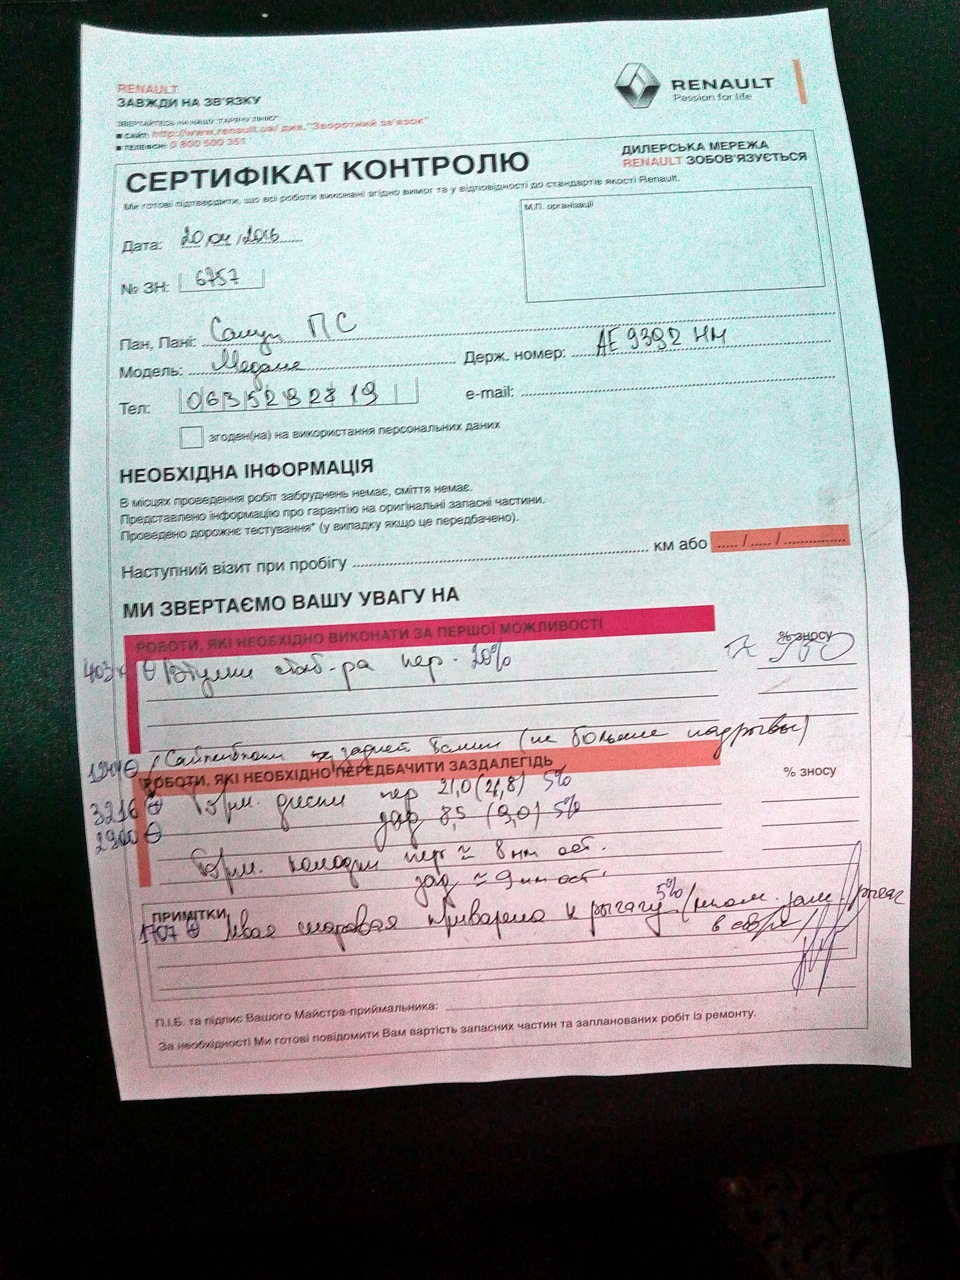 RENAULT
ЗАВЖДИ НА ЗВ'ЯЗКУ
ЗВЕРТАЙТЕСЬ НА НАШУ "ГАРЯЧУ ЛІНІЮ"
■ САЙТ: http://www.renault.ua/ див. "Зворотній зв'язок"
■ ТЕЛЕФОН: 0 800 500 351
RENAULT
Passion for life
ДИЛЕРСЬКА МЕРЕЖА
RENAULT ЗОБОВ'ЯЗУЄТЬСЯ
СЕРТИФІКАТ КОНТРОЛЮ
Ми готові підтвердити, що всі роботи виконані згідно вимог та у відповідності до стандартів якості Renault.
М.П. організації
Дата: 20,04,2016
№ ЗН: 6757
Пан, Пані: ПС
Модель: Медане
Держ. номер: АЕ 9392 НМ
Тел: 0635292819
e-mail:
згоден(на) на використання персональних даних
НЕОБХІДНА ІНФОРМАЦІЯ
В місцях проведення робіт забруднень немає, сміття немає.
Представлено інформацію про гарантію на оригінальні запасні частини.
Проведено дорожнє тестування* (у випадку якщо це передбачено).
Наступний візит при пробігу км або ..... / ..... /
МИ ЗВЕРТАЄМО ВАШУ УВАГУ НА
РОБОТИ, ЯКІ НЕОБХІДНО ВИКОНАТИ ЗА ПЕРШОЇ МОЖЛИВОСТІ
% зносу
Втулки стаб-ра пер. 20%
Сайлентблоки задней балки (не большие надрывы)
РОБОТИ, ЯКІ НЕОБХІДНО ПЕРЕДБАЧИТИ ЗАЗДАЛЕГІДЬ
% зносу
3216 Торм. диски пер 21,0 (21,8) 5%
2900 зад 8,5 (9,0) 5%
Торм. колодки пер ≈ 8мм ост.
зад ≈ 9мм ост.
ПРИМІТКИ
1707 Левая шаровая приварена к рычагу 5% рычаг
в сборе)
П.І.Б. та підпис Вашого Майстра-приймальника:
За необхідності Ми готові повідомити Вам вартість запасних частин та запланованих робіт із ремонту.